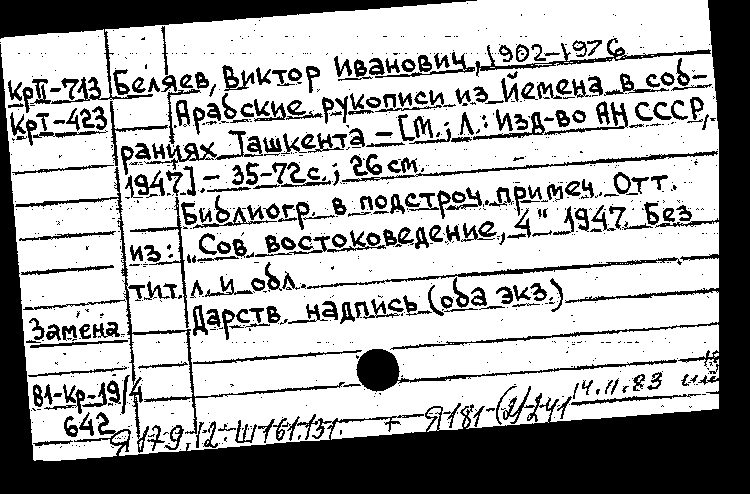 КрП-713 Беляев, Виктор Иванович, 1902-1976
КрТ-423 Арабские рукописи из Йемена в соб-
раниях Ташкента – [М.; Л.: Изд-во АН СССР,
1947]. – 35-72 с.; 26 см.
Библиогр. в подстроч. примеч. Отт.
из: „Сов. востоковедение, 4" 1947. Без
тит. л. и обл.
Замена Дарств. надпись (оба экз.)
81-Кр-19/4
642 Я 179.12. Ш 161.131. + Я 181-(2)241 14.11.83